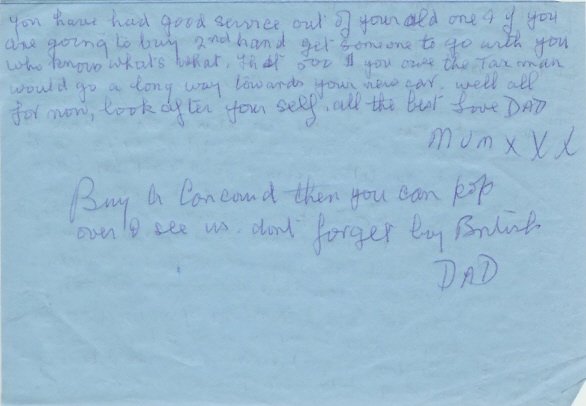 you have had good service out of your old one & if you
are going to buy 2nd hand get someone to go with you
who knows what's what. that 500 you owe the Tax man
would go a long way towards your new car. well all
for now, look after your self. all the best Love DAD
MUM X X X
Buy a Concourd then you can pop
over & see us. dont forget buy British
DAD